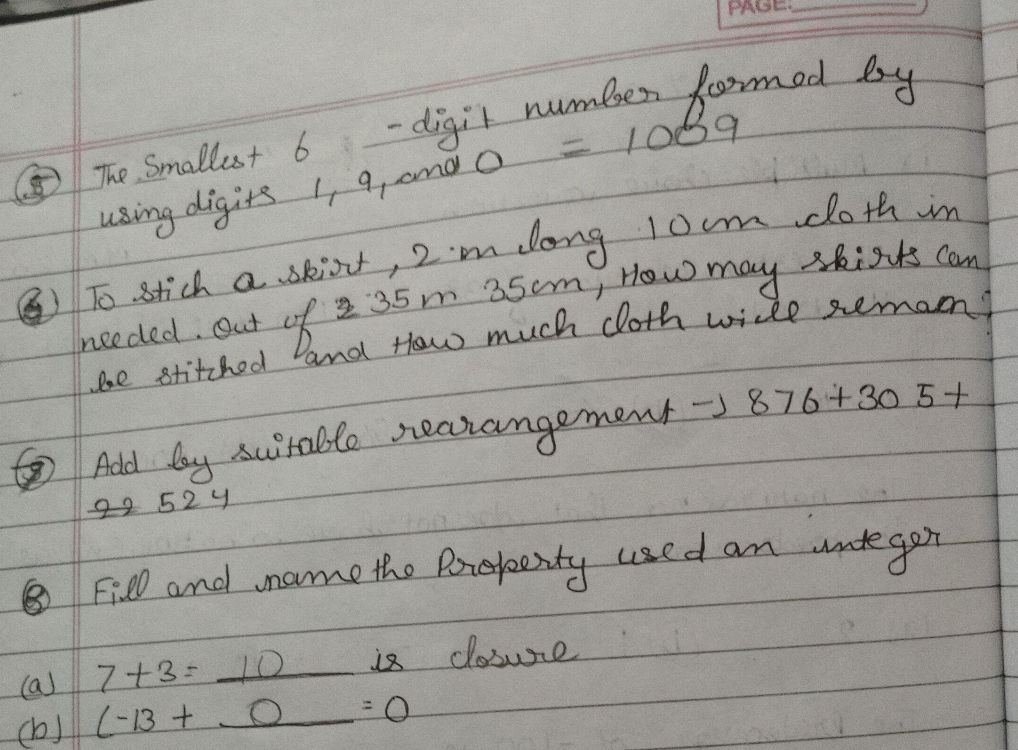 PAGE:
5 The Smallest 6 -digit number formed by
using digits 1, 9, and 0 = 1009
6 To stich a skirt, 2 m long 10 cm cloth in
needed. Out of 35 m 35cm, How may skirts can
be stitched and How much cloth will remain?
7 Add by suitable rearangement → 876 + 305 +
22 524
8 Fill and name the Property used an integer
(a) 7+3= 10 is closure
(b) (-13 + 0 = 0